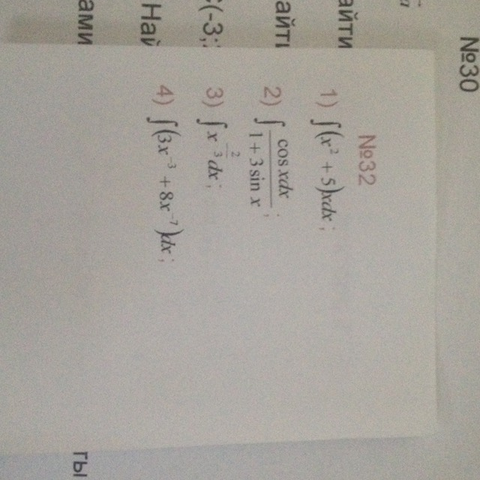 №30
айти
айти
(-3;
Най
ами
ты
№32
1) ∫(x² + 5)xdx ;
2) ∫ cos xdx / 1 + 3 sin x ;
3) ∫ x^(-2/3) dx ;
4) ∫(3x⁻³ + 8x⁻⁷)dx ;